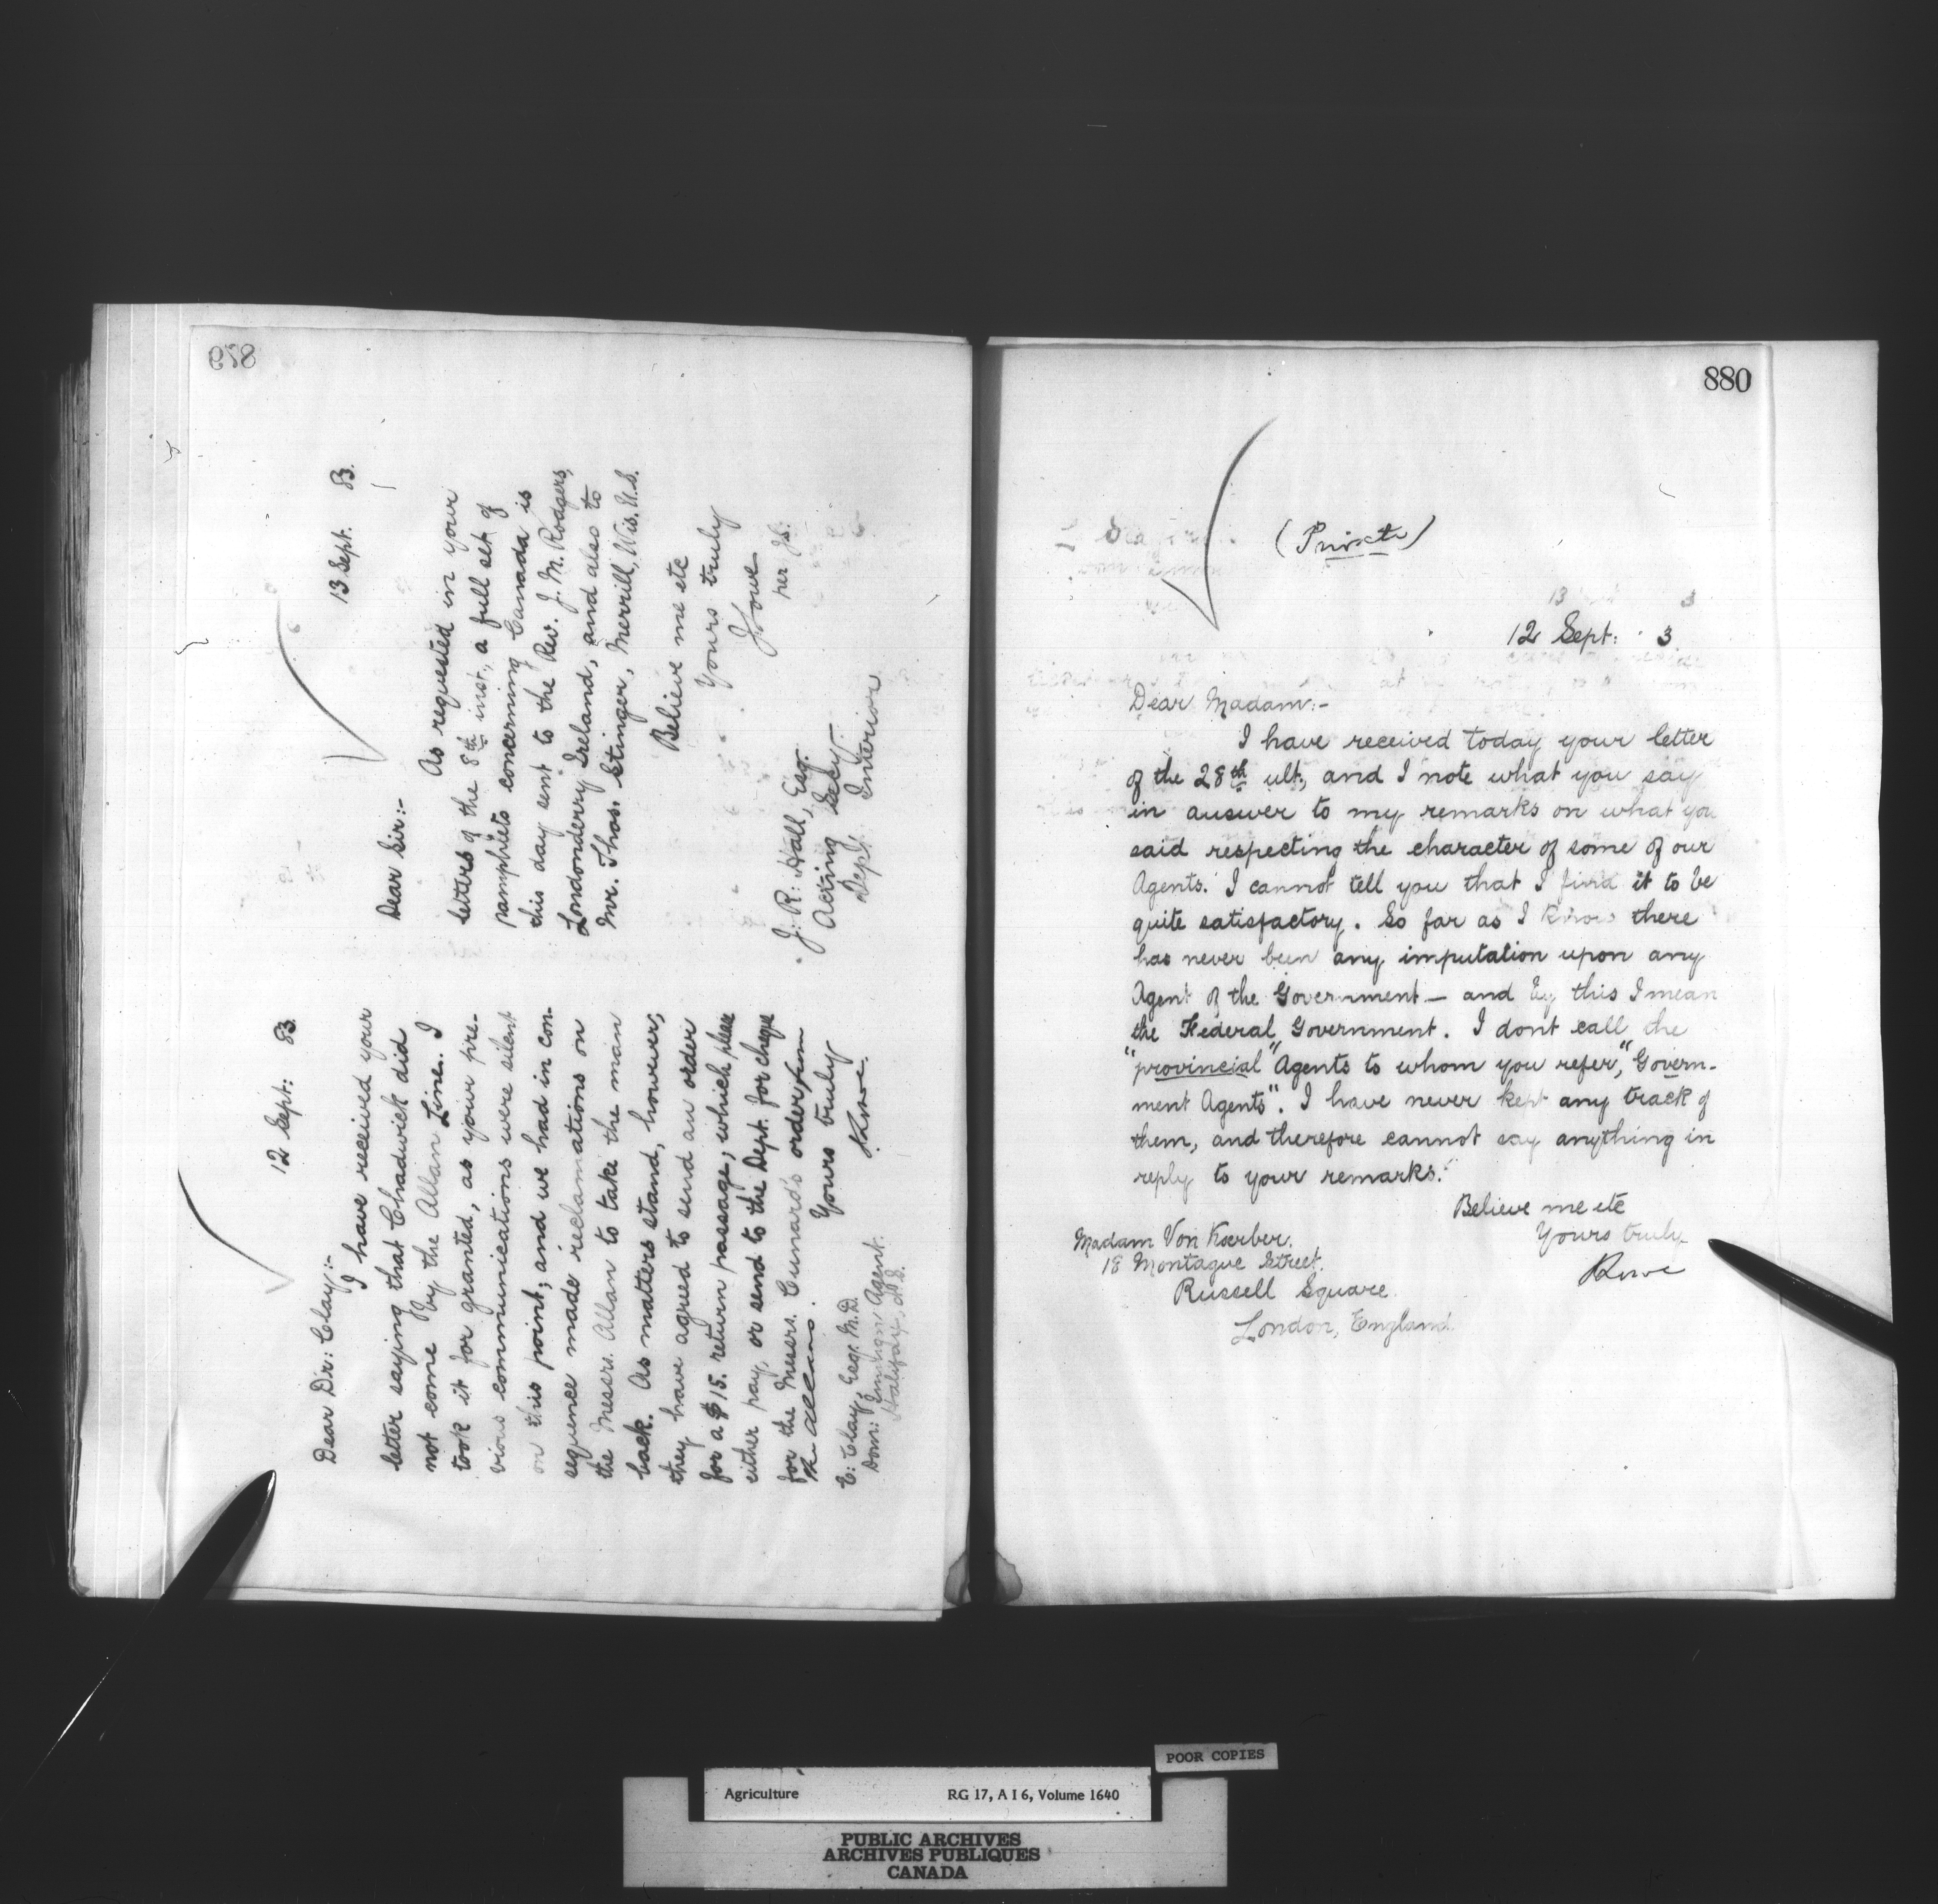 879
12 Sept: 83.
Dear Dr: Clay:-
I have received your
letter saying that Chadwick did
not come by the Allan Line. I
took it for granted, as your pre-
vious communications were silent
on this point; and we had in con-
sequence made reclamations on
the Messrs. Allan to take the man
back. As matters stand, however,
they have agreed to send an order
for a $15. return passage; which please
either pay, or send to the Dept. for cheque
for the Messrs. Cunard's order from
the Allans.
Yours truly
E: Clay, Esq. M.D.
Dom: Immign: Agent.
Halifax, N.S.
13 Sept. 83.
Dear Sir:-
As requested in your
letters of the 8th inst., a full set of
pamphlets concerning Canada is
this day sent to the Rev. J. M. Rodgers,
Londonderry Ireland, and also to
Mr. Thos. Stinger, Merrill, Wis. U.S.
Believe me etc
Yours truly
JLowe
per
J: R: Hall, Esq.
Acting Secy.
Dept. Interior
880
(Private)
12 Sept: 3
Dear Madam:-
I have received today your letter
of the 28th ult., and I note what you say
in answer to my remarks on what you
said respecting the character of some of our
Agents. I cannot tell you that I find it to be
quite satisfactory. So far as I know there
has never been any imputation upon any
Agent of the Government — and by this I mean
the Federal Government. I dont call the
"provincial" Agents to whom you refer, "Govern-
ment Agents". I have never kept any track of
them, and therefore cannot say anything in
reply to your remarks.
Believe me etc
Yours truly
Madam Von Koerber.
18 Montague Street.
Russell Square.
London, England.
POOR COPIES
Agriculture RG 17, A I 6, Volume 1640
PUBLIC ARCHIVES
ARCHIVES PUBLIQUES
CANADA